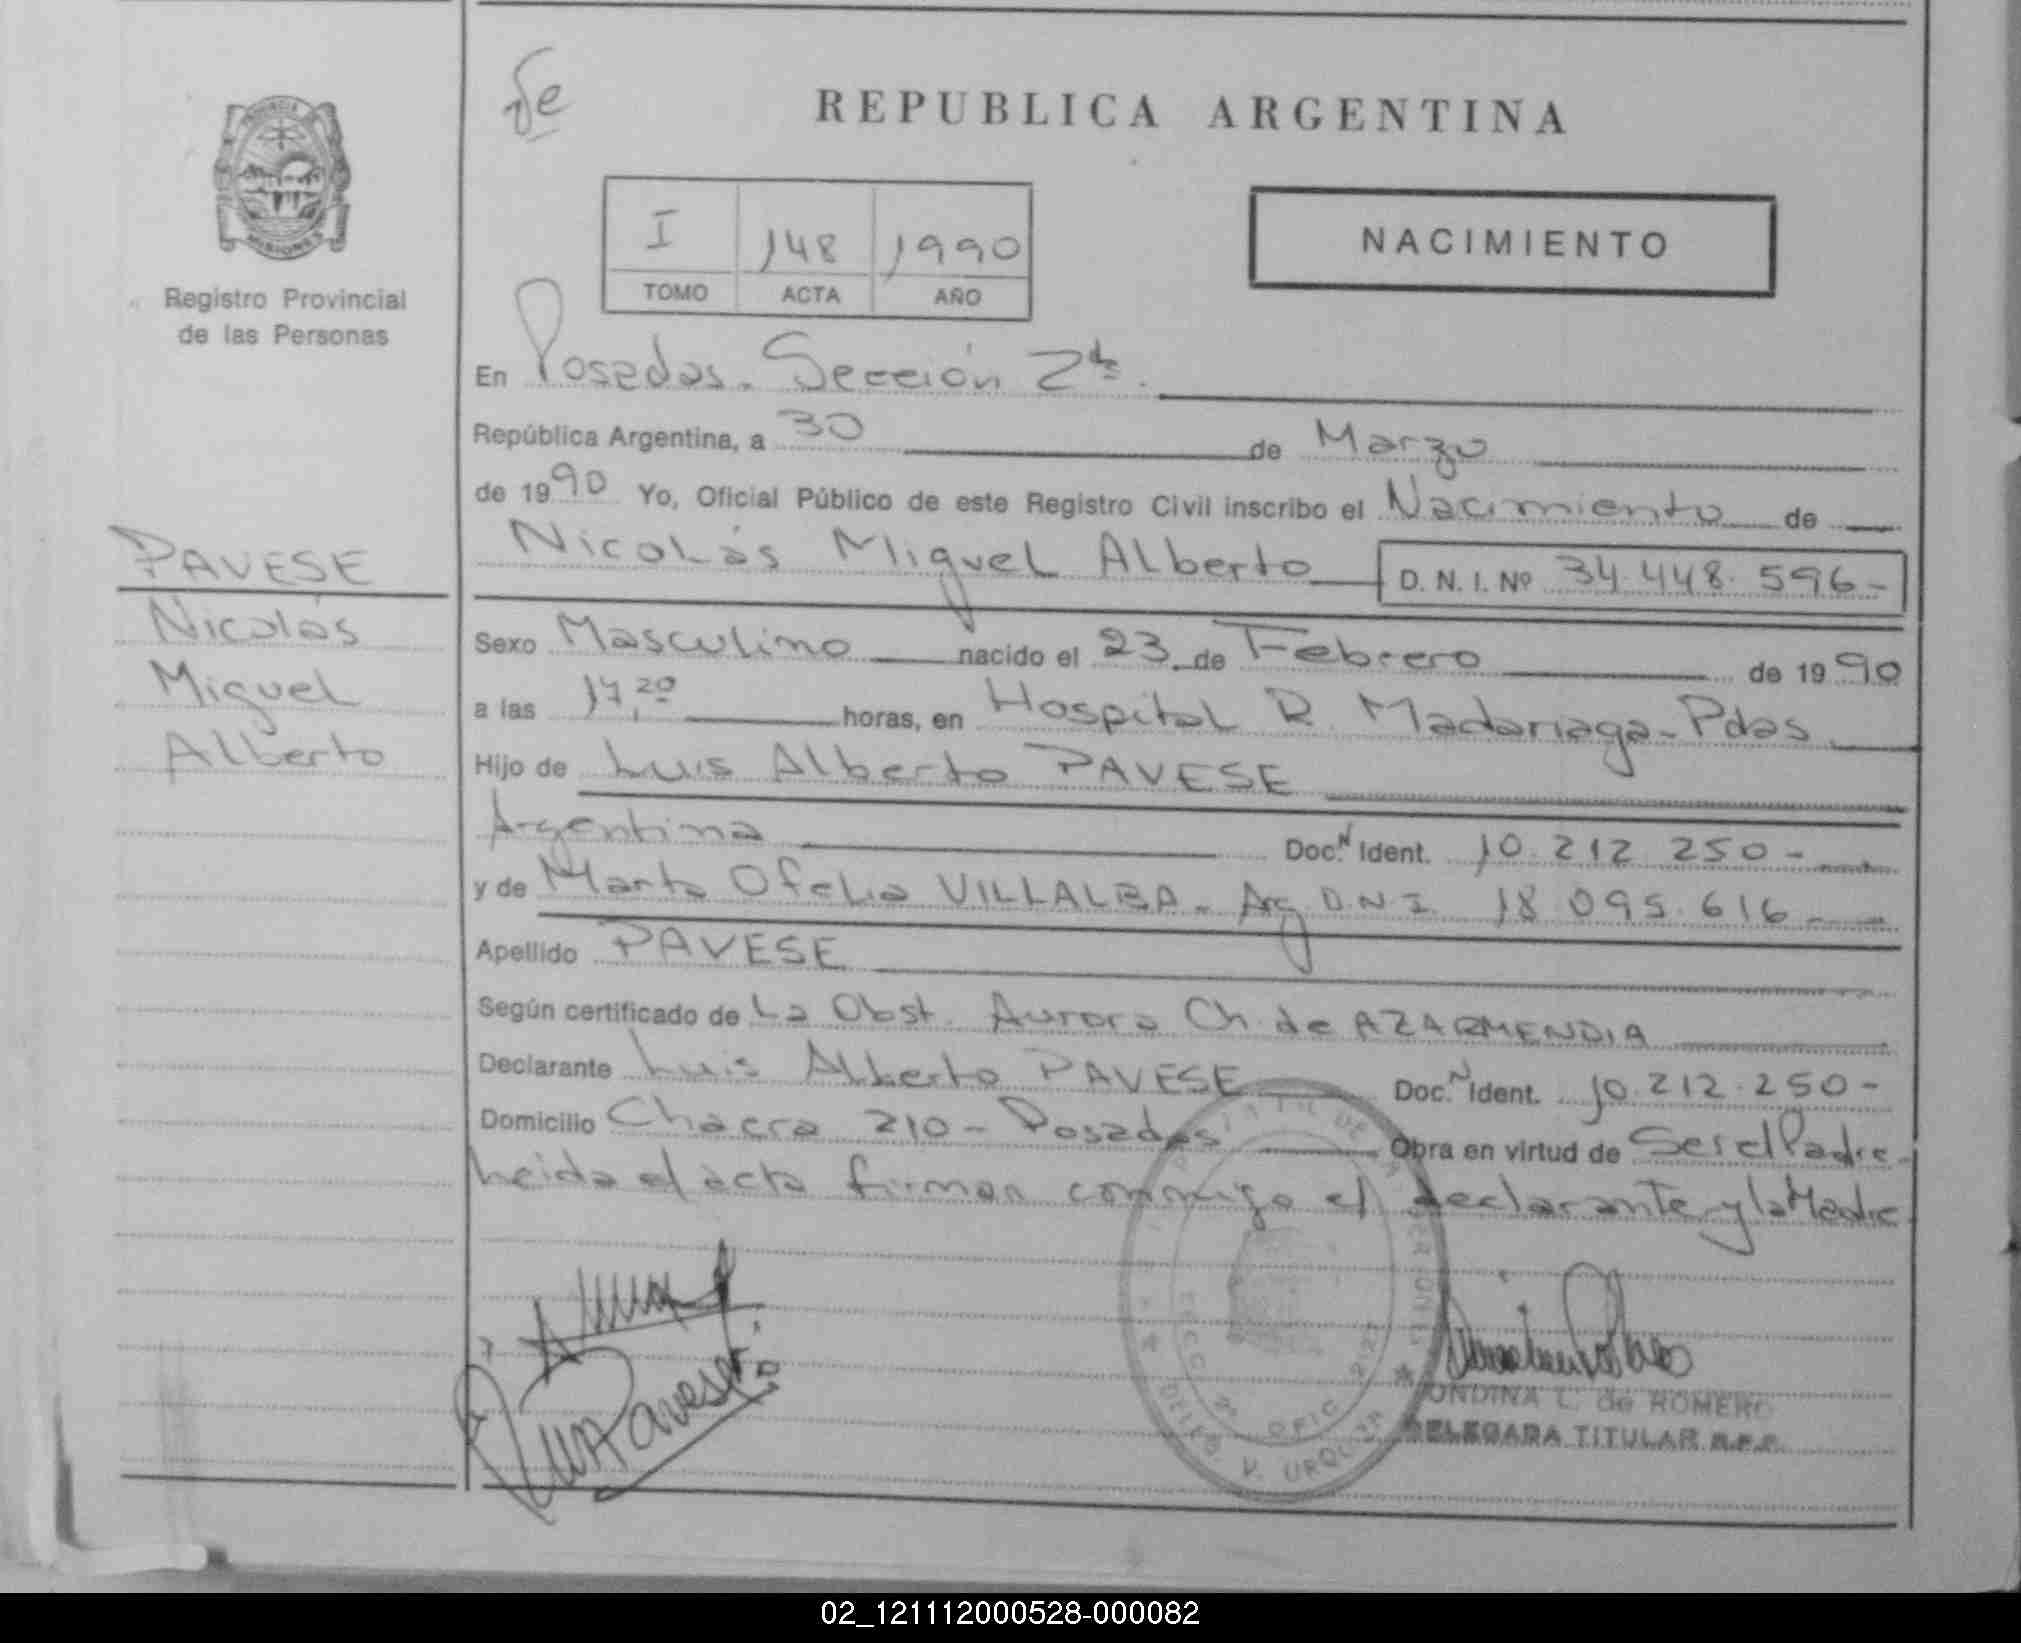 Je
REPUBLICA ARGENTINA
PROVINCIA
MISIONES
Registro Provincial
de las Personas
I 148 1990
TOMO ACTA AÑO
NACIMIENTO
En Posadas. Sección 2da.
República Argentina, a 30 de Marzo
de 1990 Yo, Oficial Público de este Registro Civil inscribo el Nacimiento de
Nicolás Miguel Alberto D. N. I. Nº 34.448.596-
PAVESE
Nicolás
Miguel
Alberto
Sexo Masculino nacido el 23 de Febrero de 1990
a las 17,20 horas, en Hospital R. Madariaga-Pdas
Hijo de Luis Alberto PAVESE
Argentina Doc.N Ident. 10.212 250-
y de Marta Ofelia VILLALBA. Arg D.N.I. 18 095.616
Apellido PAVESE
Según certificado de La Obst. Aurora Ch. de AZARMENDIA
Declarante Luis Alberto PAVESE Doc.N Ident. 10.212.250-
Domicilio Chacra 210- Posadas Obra en virtud de Ser el Padre-
Leida el acta firman conmigo el declarante y la Madre
Pavese
SECC. 2ª OFIC. 2127
DELEG. V. URQUIZA
UNDINA L. de ROMERO
DELEGADA TITULAR R.P.P.
02_121112000528-000082